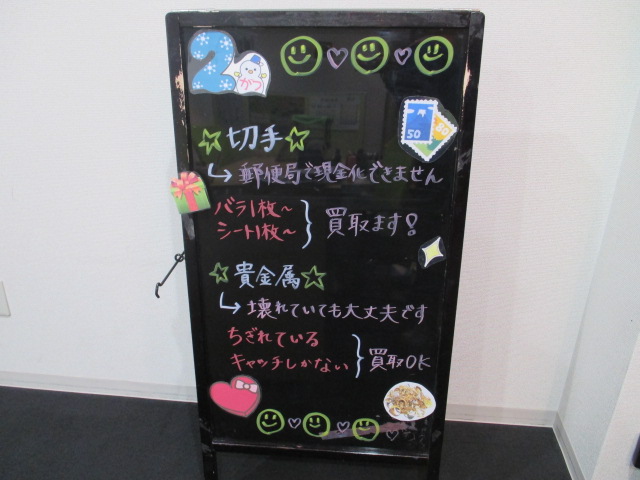 2
がつ
☆切手☆
50
80
↳郵便局で現金化できません
バラ1枚～
シート1枚～
買取ます!
☆貴金属☆
↳壊れていても大丈夫です
ちぎれている
キャッチしかない
買取OK